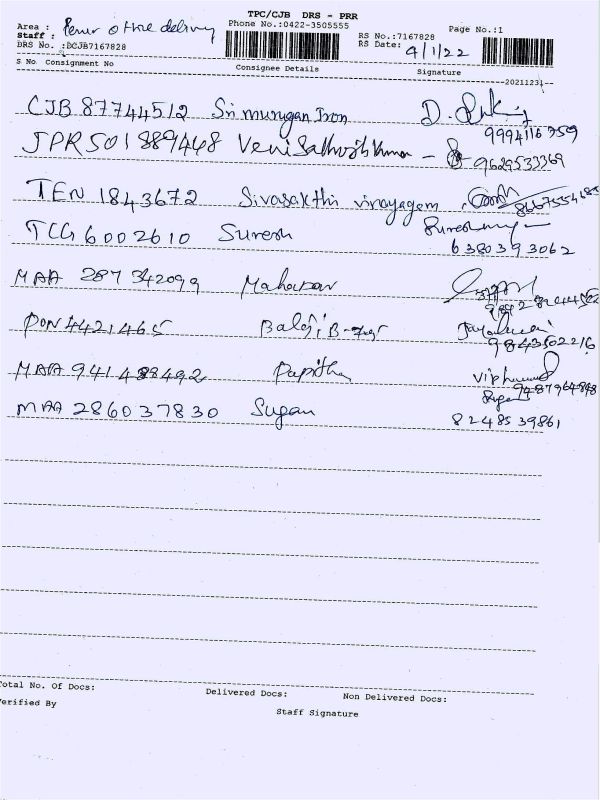 TPC/CJB DRS - PRR
Area : Perur office delivery Phone No.:0422-3505555 Page No.:1
Staff : RS No.:7167828
DRS No. :DCJB7167828 RS Date: 4/1/22
S No Consignment No Consignee Details Signature
20211231
CJB 87744512 Sri murugan Iron
9994116759
JPR501889448 Veni Sathosh kumar 9629533369
TEN 1843672 Sivasakthi vinayagam
TCG 6002610 Suresh
6380393062
MAA 287342099
PON 4421465 Balaji
9843502216
MAA Papitha
MAA 286037830 Sugan
8248539861
Total No. Of Docs: Delivered Docs: Non Delivered Docs:
Verified By
Staff Signature